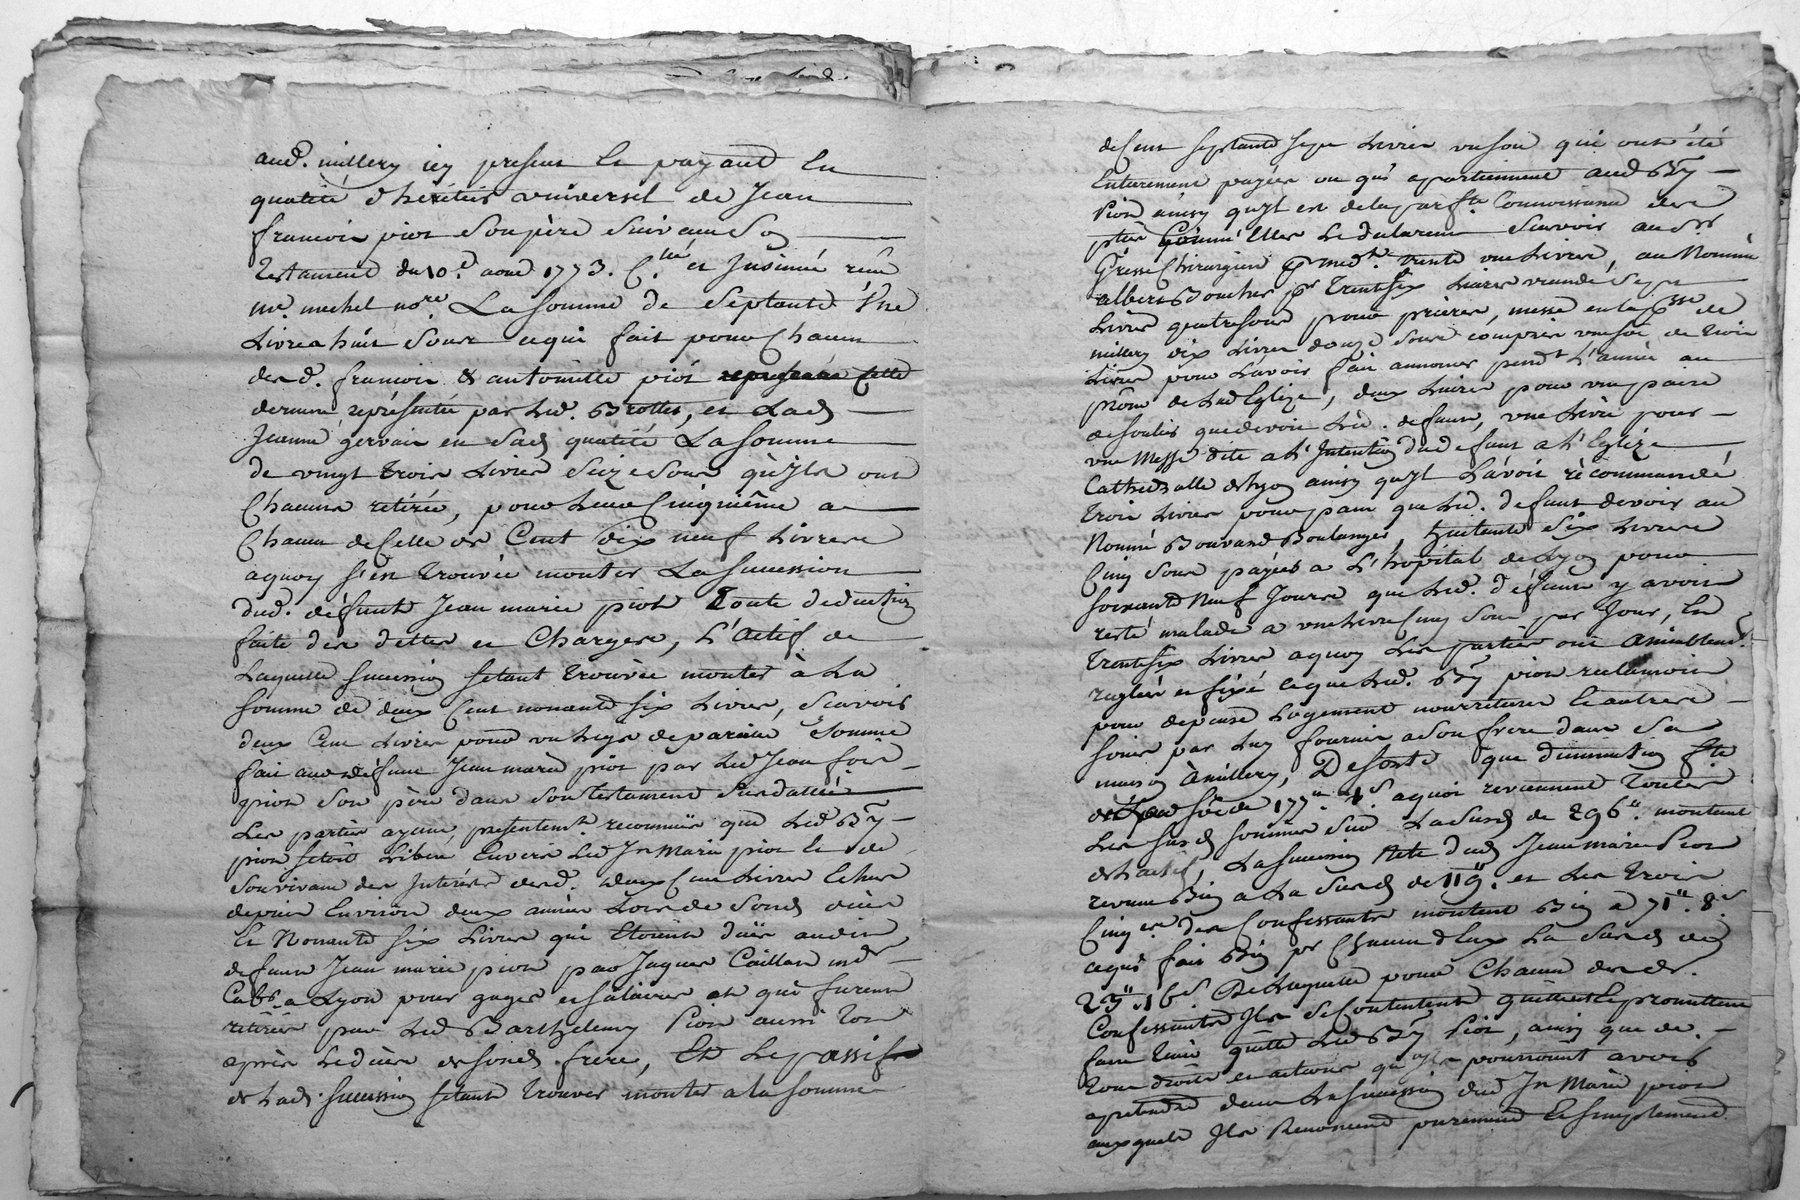 aud. millery icy present et payant en
qualité d'heritier universel de Jean
francois piot son père suivant son
testament du 10e. aout 1773. C.lé et Insinué reçu
me. mechel nore. La somme de Septante Une
Livres huit Sous ce qui fait pour Chacun
desd. francois & antoinette piot
derniere représentée par led. Brottet, et Lad.
Jeanne gervais en Sad. qualité La somme
de vingt trois Livres Seize Sous qu'ils ont
Chacuns retirée, pour Leur Cinquième a
Chacun de Celle de Cent dix neuf Livres
aquoy s'est trouvée monter La succession
dud. défunt Jean marie piot Toute deduction
faite des dettes et Charges, L'actif de
Laquelle succession s'etant trouvée monter à La
somme de deux Cent nonante six Livres, Scavoir
deux Cent Livres pour un Legs de pareille Somme
fait aud. défunt Jean marie piot par Led. Jean fois
piot Son père dans Son testament Susdatté
Les parties ayant presentemt. reconnües que Led. Bmy
piot s'etoit Liberé Envers Led. Jn Marie piot de
Souvivant des Intérets desd. deux Cent Livres Echus
depuis Environ deux années Lors de Sond. décès
Et Nonante six Livres qui Etoient dües audit
defunt Jean marie piot par Jaques Caillat md
Cabr. a Lyon pour gages et salaires et qui furent
retirés par Led. Barthelemy Piot aussi tot
après Le décès de sond. frere, Et Le passif
de Lad. succession s'etant trouver monter a la somme
de Cent septante sept Livres un sou qui ont été
Entierement payées ou qui apartiennent aud. Bmy
Piot ainsy qu'il est de la parfte Connoissance des
pties Comme Elles Le déclarent Scavoir au Sr.
Gresse Chirurgien pr medts. trente une Livres, au Nommé
albert Boucher pr Trente six Livres viande Sept
Livres quatre sous pour prieres, messe en la psse de
millery dix Livres douze Sous compris une soe de trois
Livres pour L'avoir fait annoncer pendt L'année au
prône de Lad. Eglize, deux Livres pour une paire
de souliers que devoit Led. defunt, une Livre pour
une Messe dite a L'Intention dud. defunt a L'Eglize
Cathedralle de Lyon ainsy qu'il L'avoit récommandé
trois Livres pour pain que Led. defunt devoit au
Nommé Bouvard Boulanger, huitente Six Livres
Cinq Sous payées a L'hôpital de Lyon pour
soixante Neuf Jours que Led. défunt y avoit
resté malade a une Livre Cinq Sous par Jour, Et
Trente six Livres aquoy Les parties ont amiablemt.
reglées et fixé ce que Led. Bmy piot reclamoit
pour depense Logement nourriture Et autres
soins par Luy fournis a Son frere dans Sa
maison à millery, De Sorte que diminution fte
de Lad. soe de 177tt. 1s. aquoi reviennent toutes
Les susd. sommes Sur La Susd. de 296tt. montant
de L'actif, La succession Nete dud. Jean marie Piot
revient Bien a La Susd. de 119tt. et Les trois
Cinqes. des Confessants montent Bien à 71tt. 8s.
ce qui fait Bien pr Chacun d'Eux La Susd. de
23tt. 16s. De Laquelle pour Chacun desds.
Confessants Ils Se Contentent quittent Et promettent
faire tenir quitte Led. Bmy Piot, ainsy que de
tous droits et actions qu'ils pourroient avoir
a pretendre dans La succession dud. Jn Marie piot
auxquels Ils Renoncent purement Et simplement